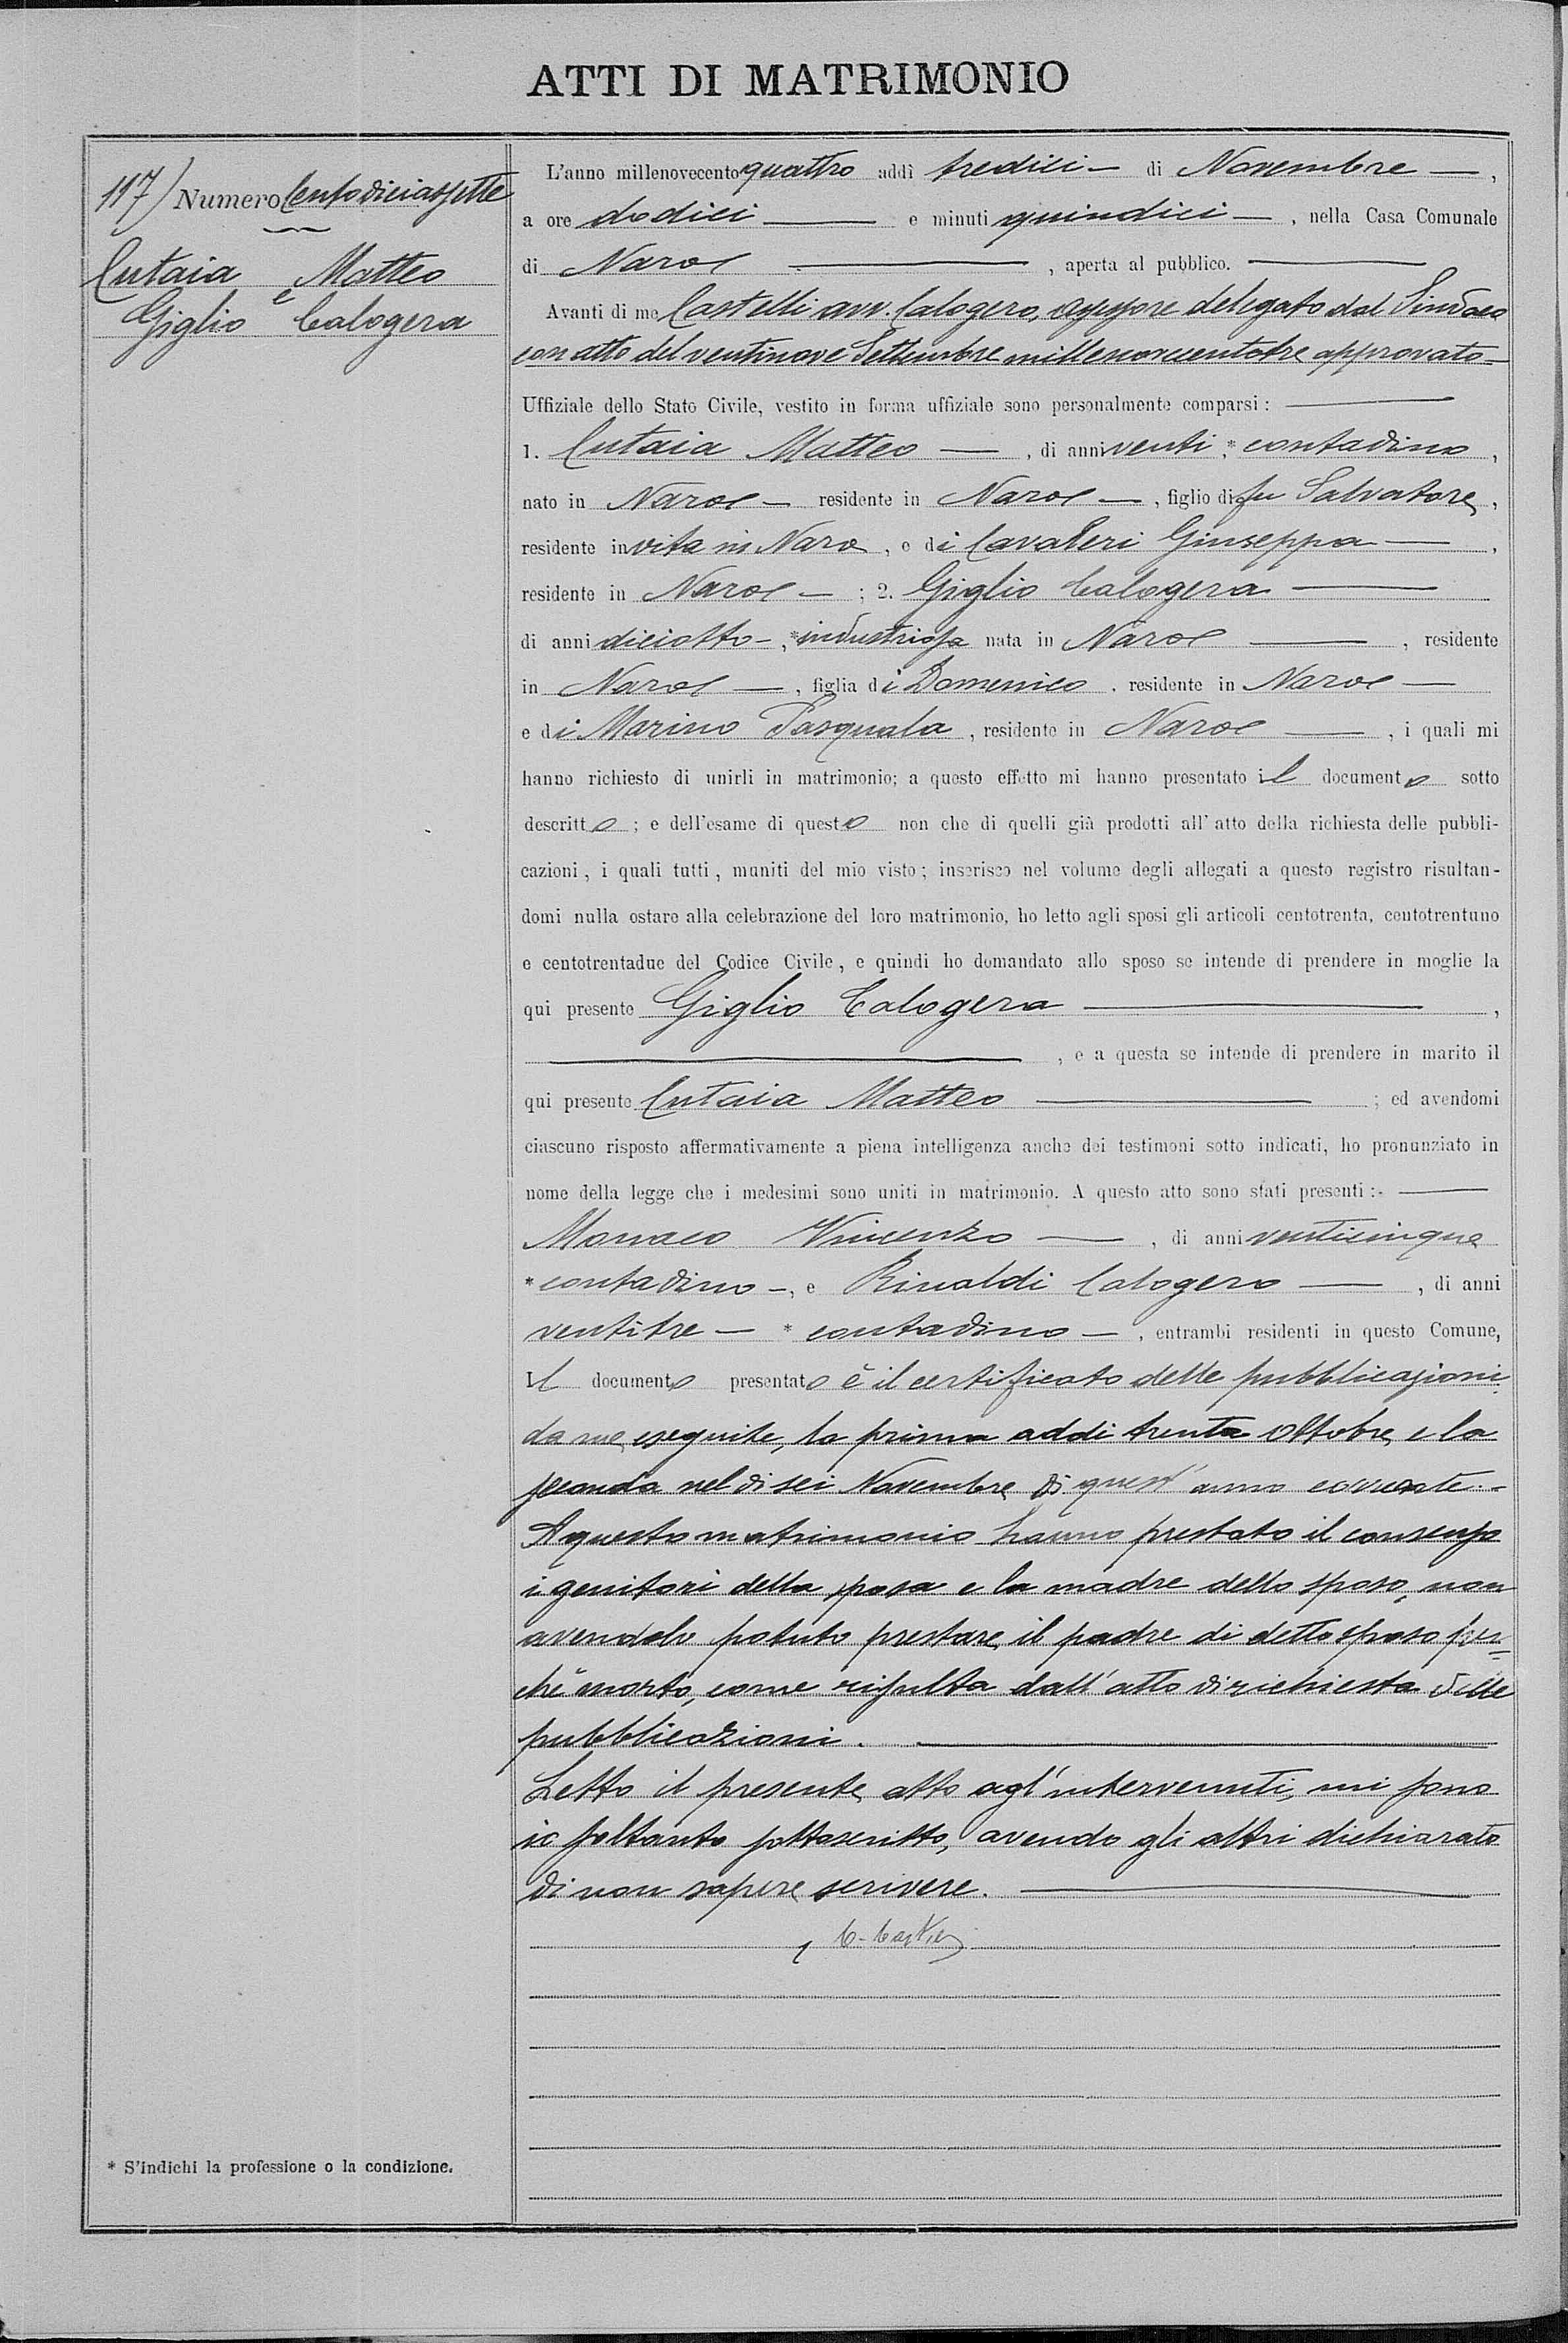 ATTI DI MATRIMONIO
117) Numero Centodiciassette
Cutaia Matteo
e
Giglio Calogera
L'anno millenovecento quattro addì tredici — di Novembre —,
a ore dodici — e minuti quindici —, nella Casa Comunale
di Naro —, aperta al pubblico. —
Avanti di me Castelli avv. Calogero, assessore delegato dal Sindaco
con atto del ventinove Settembre millenovecentotre approvato —
Uffiziale dello Stato Civile, vestito in forma uffiziale sono personalmente comparsi: —
1. Cutaia Matteo —, di anni venti, * contadino,
nato in Naro — residente in Naro —, figlio di fu Salvatore,
residente in vita in Naro, e di Cavaleri Giuseppa —,
residente in Naro —; 2. Giglio Calogera —
di anni diciotto —, * industriosa nata in Naro —, residente
in Naro —, figlia di Domenico, residente in Naro —
e di Marino Pasquala, residente in Naro —, i quali mi
hanno richiesto di unirli in matrimonio; a questo effetto mi hanno presentato il documento sotto
descritto; e dell'esame di questo non che di quelli già prodotti all'atto della richiesta delle pubbli-
cazioni, i quali tutti, muniti del mio visto; inserisco nel volume degli allegati a questo registro risultan-
domi nulla ostare alla celebrazione del loro matrimonio, ho letto agli sposi gli articoli centotrenta, centotrentuno
e centotrentadue del Codice Civile, e quindi ho domandato allo sposo se intende di prendere in moglie la
qui presente Giglio Calogera —,
—, e a questa se intende di prendere in marito il
qui presente Cutaia Matteo —; ed avendomi
ciascuno risposto affermativamente a piena intelligenza anche dei testimoni sotto indicati, ho pronunziato in
nome della legge che i medesimi sono uniti in matrimonio. A questo atto sono stati presenti: —
Monaco Vincenzo —, di anni venticinque
* contadino —, e Rinaldi Calogero —, di anni
ventitre — * contadino —, entrambi residenti in questo Comune,
Il documento presentato è il certificato delle pubblicazioni
da me eseguite, la prima addì trenta Ottobre, e la
seconda nel dì sei Novembre di quest'anno corrente. —
A questo matrimonio hanno prestato il consenso
i genitori della sposa e la madre dello sposo, non
avendolo potuto prestare il padre di detto sposo per-
chè morto, come risulta dall'atto di richiesta delle
pubblicazioni. —
Letto il presente atto agl'intervenuti, mi sono
io soltanto sottoscritto, avendo gli altri dichiarato
di non sapere scrivere. —
* S'indichi la professione o la condizione.